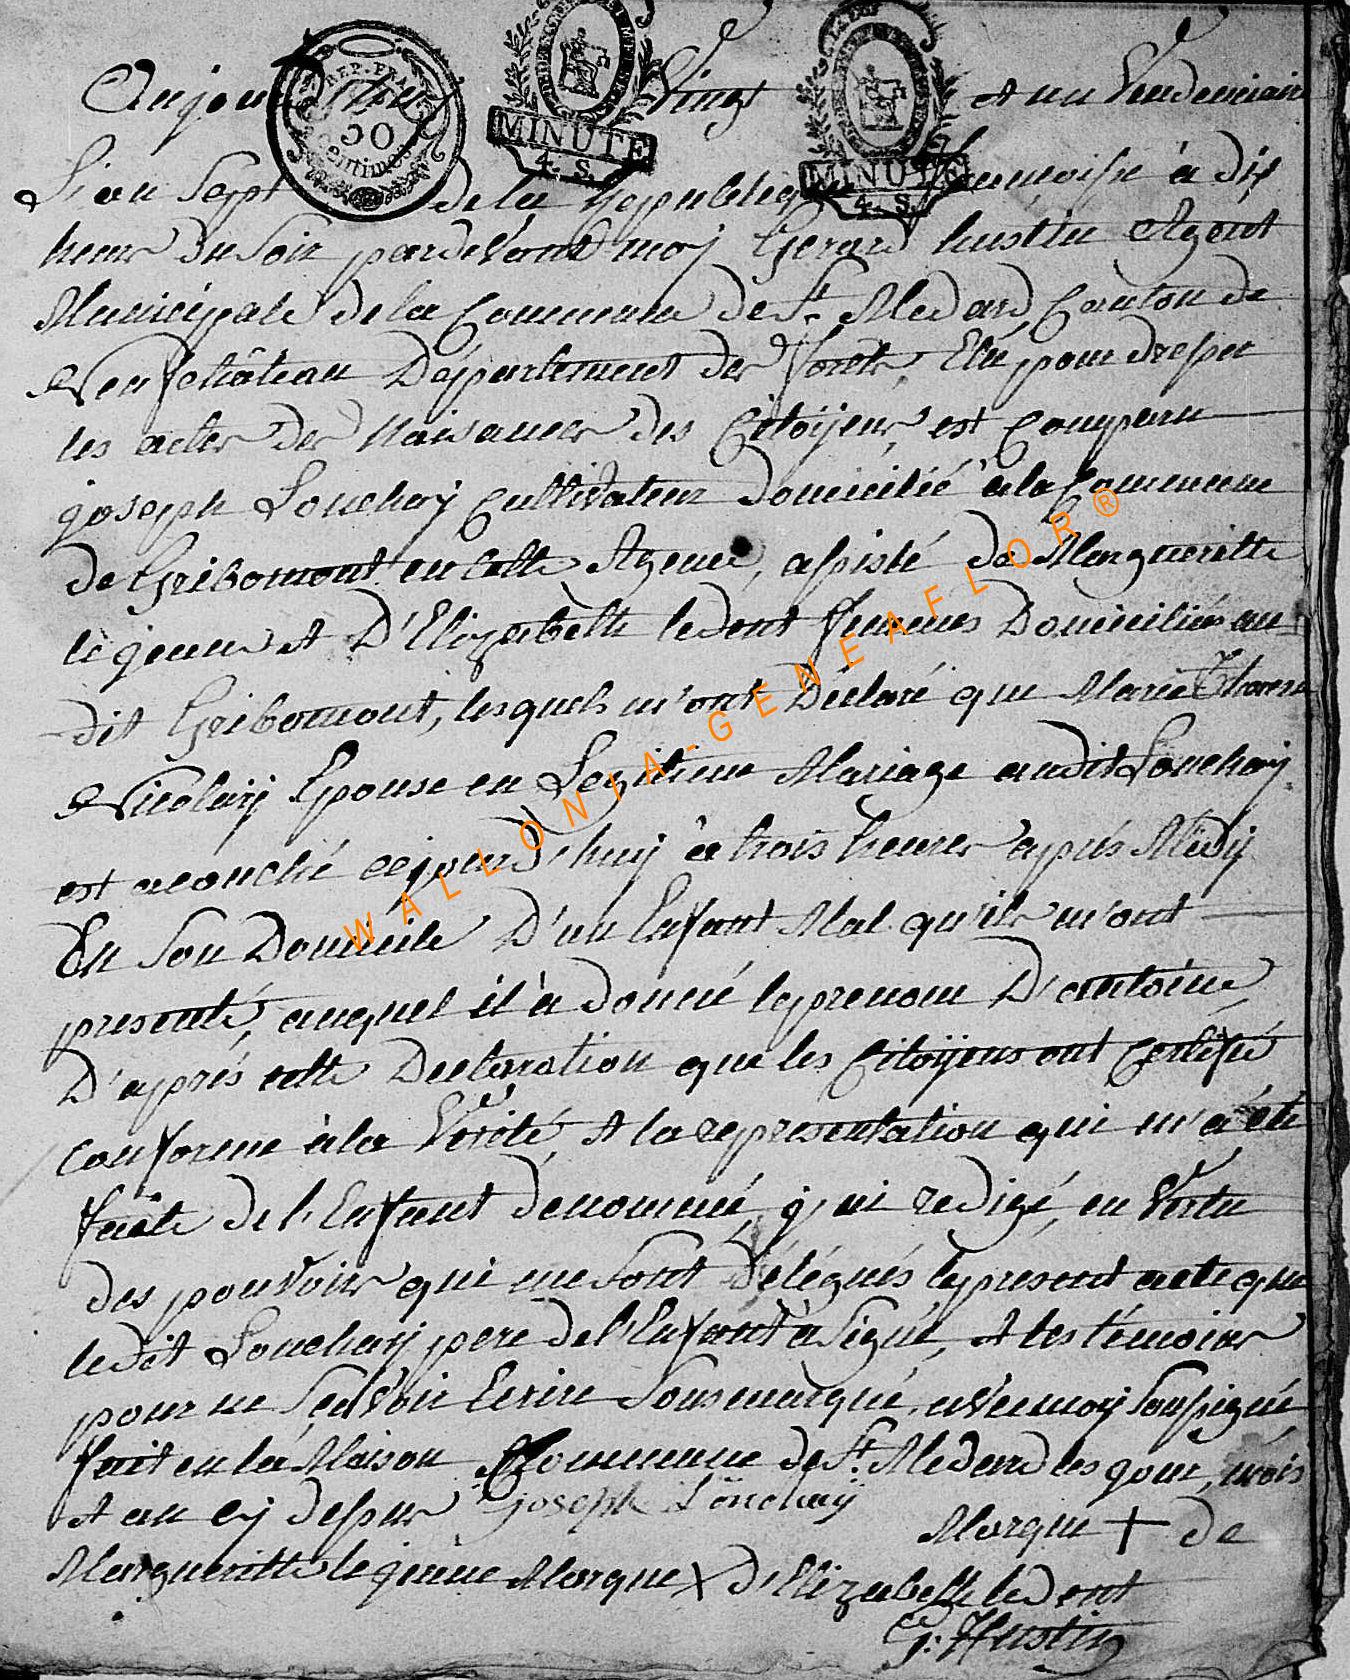 REP. FRA
50
Centimes
MINUTE
4. S.
MINUTE
4. S.
Vingt et un Vendemiair
L'an Sept de la Republique francoise à dix
heur du Soir pardevant moy Gerard hustin Agent
Municipale de la Commune de St. Medard Canton de
Neufchâteau Département des forêts, Elu pour dresser
les actes des Naisances des Citoÿens, est Comparu
joseph Louchaÿ Cultivateur domicilié à la Commune
de Gribomont en cette Agence, assisté de Margueritte
le jeune et D'Elizabeth ledent femmes Domiciliés au
dit Gribomont, lesquels m'ont Déclaré que Marie Therese
Nicolaÿ Epouse en Legitime Mariage audit Louchaÿ
est acouché cejourd'huÿ à trois heures après Midÿ
En Son Domicile D'un Enfant Mal qu'ils m'ont
presenté, auquel il à donné le prenom D'antoine,
D'après cette Declaration que les Citoÿens ont Certifié
conforme à la Vérité, et la representation qui m'a été
faite de l'Enfant dénommé, j'ai redigé, en Vertu
des pouvoirs qui me Sont Délégués le present acte que
ledit Louchaÿ pere de l'Enfant à Signé, et les témoins
pour ne Sçavoir Ecrire Sousmarqué, avec moy Soussigné
fait en la Maison Commune de St. Medard les jour, mois
et an cy dessus Joseph Louchaÿ
Marque + de
Margueritte le jeune Marque X d'Elizabeth ledent
G: Hustin
WALLONIA-GENEAFLOR®